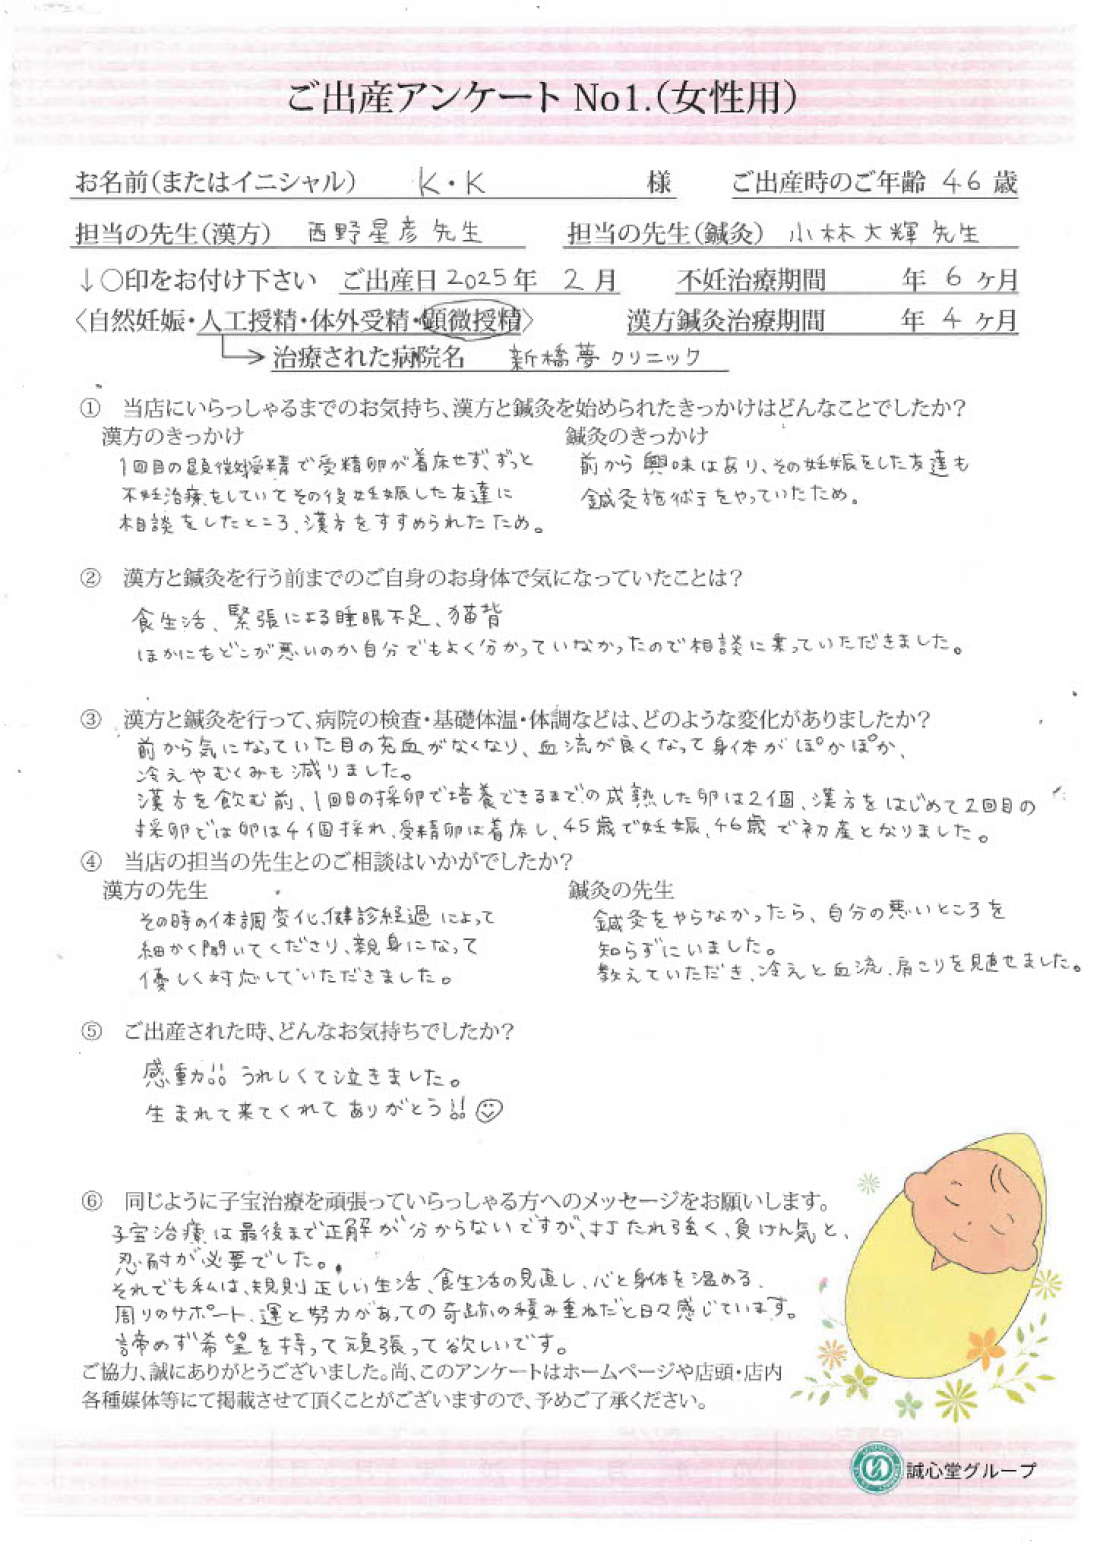 ご出産アンケート No1.(女性用)
お名前(またはイニシャル) K・K 様 ご出産時のご年齢 46 歳
担当の先生(漢方) 西野星彦先生 担当の先生(鍼灸) 小林大輝先生
↓○印をお付け下さい ご出産日 2025年 2月 不妊治療期間 年 6 ヶ月
〈自然妊娠・人工授精・体外受精・顕微授精〉 漢方鍼灸治療期間 年 4 ヶ月
治療された病院名 新橋夢クリニック
① 当店にいらっしゃるまでのお気持ち、漢方と鍼灸を始められたきっかけはどんなことでしたか?
漢方のきっかけ 鍼灸のきっかけ
1回目の顕微授精で受精卵が着床せず、ずっと
不妊治療をしていてその後妊娠した友達に
相談をしたところ、漢方をすすめられたため。
前から興味はあり、その妊娠をした友達も
鍼灸施術をやっていたため。
② 漢方と鍼灸を行う前までのご自身のお身体で気になっていたことは?
食生活、緊張による睡眠不足、猫背
ほかにもどこが悪いのか自分でもよく分かっていなかったので相談に乗っていただきました。
③ 漢方と鍼灸を行って、病院の検査・基礎体温・体調などは、どのような変化がありましたか?
前から気になっていた目の充血がなくなり、血流が良くなって身体がぽかぽか、
冷えやむくみも減りました。
漢方を飲む前、1回目の採卵で培養できるまでの成熟した卵は2個、漢方をはじめて2回目の
採卵では卵は4個採れ、受精卵は着床し、45歳で妊娠、46歳で初産となりました。
④ 当店の担当の先生とのご相談はいかがでしたか?
漢方の先生 鍼灸の先生
その時の体調変化、健診経過によって
細かく聞いてくださり、親身になって
優しく対応していただきました。
鍼灸をやらなかったら、自分の悪いところを
知らずにいました。
教えていただき、冷えと血流、肩こりを見直せました。
⑤ ご出産された時、どんなお気持ちでしたか?
感動!! うれしくて泣きました。
生まれて来てくれてありがとう!!
⑥ 同じように子宝治療を頑張っていらっしゃる方へのメッセージをお願いします。
子宝治療は最後まで正解が分からないですが、打たれ強く、負けん気と、
忍耐が必要でした。
それでも私は、規則正しい生活、食生活の見直し、心と身体を温める、
周りのサポート、運と努力があっての奇跡の積み重ねだと日々感じています。
諦めず希望を持って頑張って欲しいです。
ご協力、誠にありがとうございました。尚、このアンケートはホームページや店頭・店内
各種媒体等にて掲載させて頂くことがございますので、予めご了承ください。
誠心堂グループ